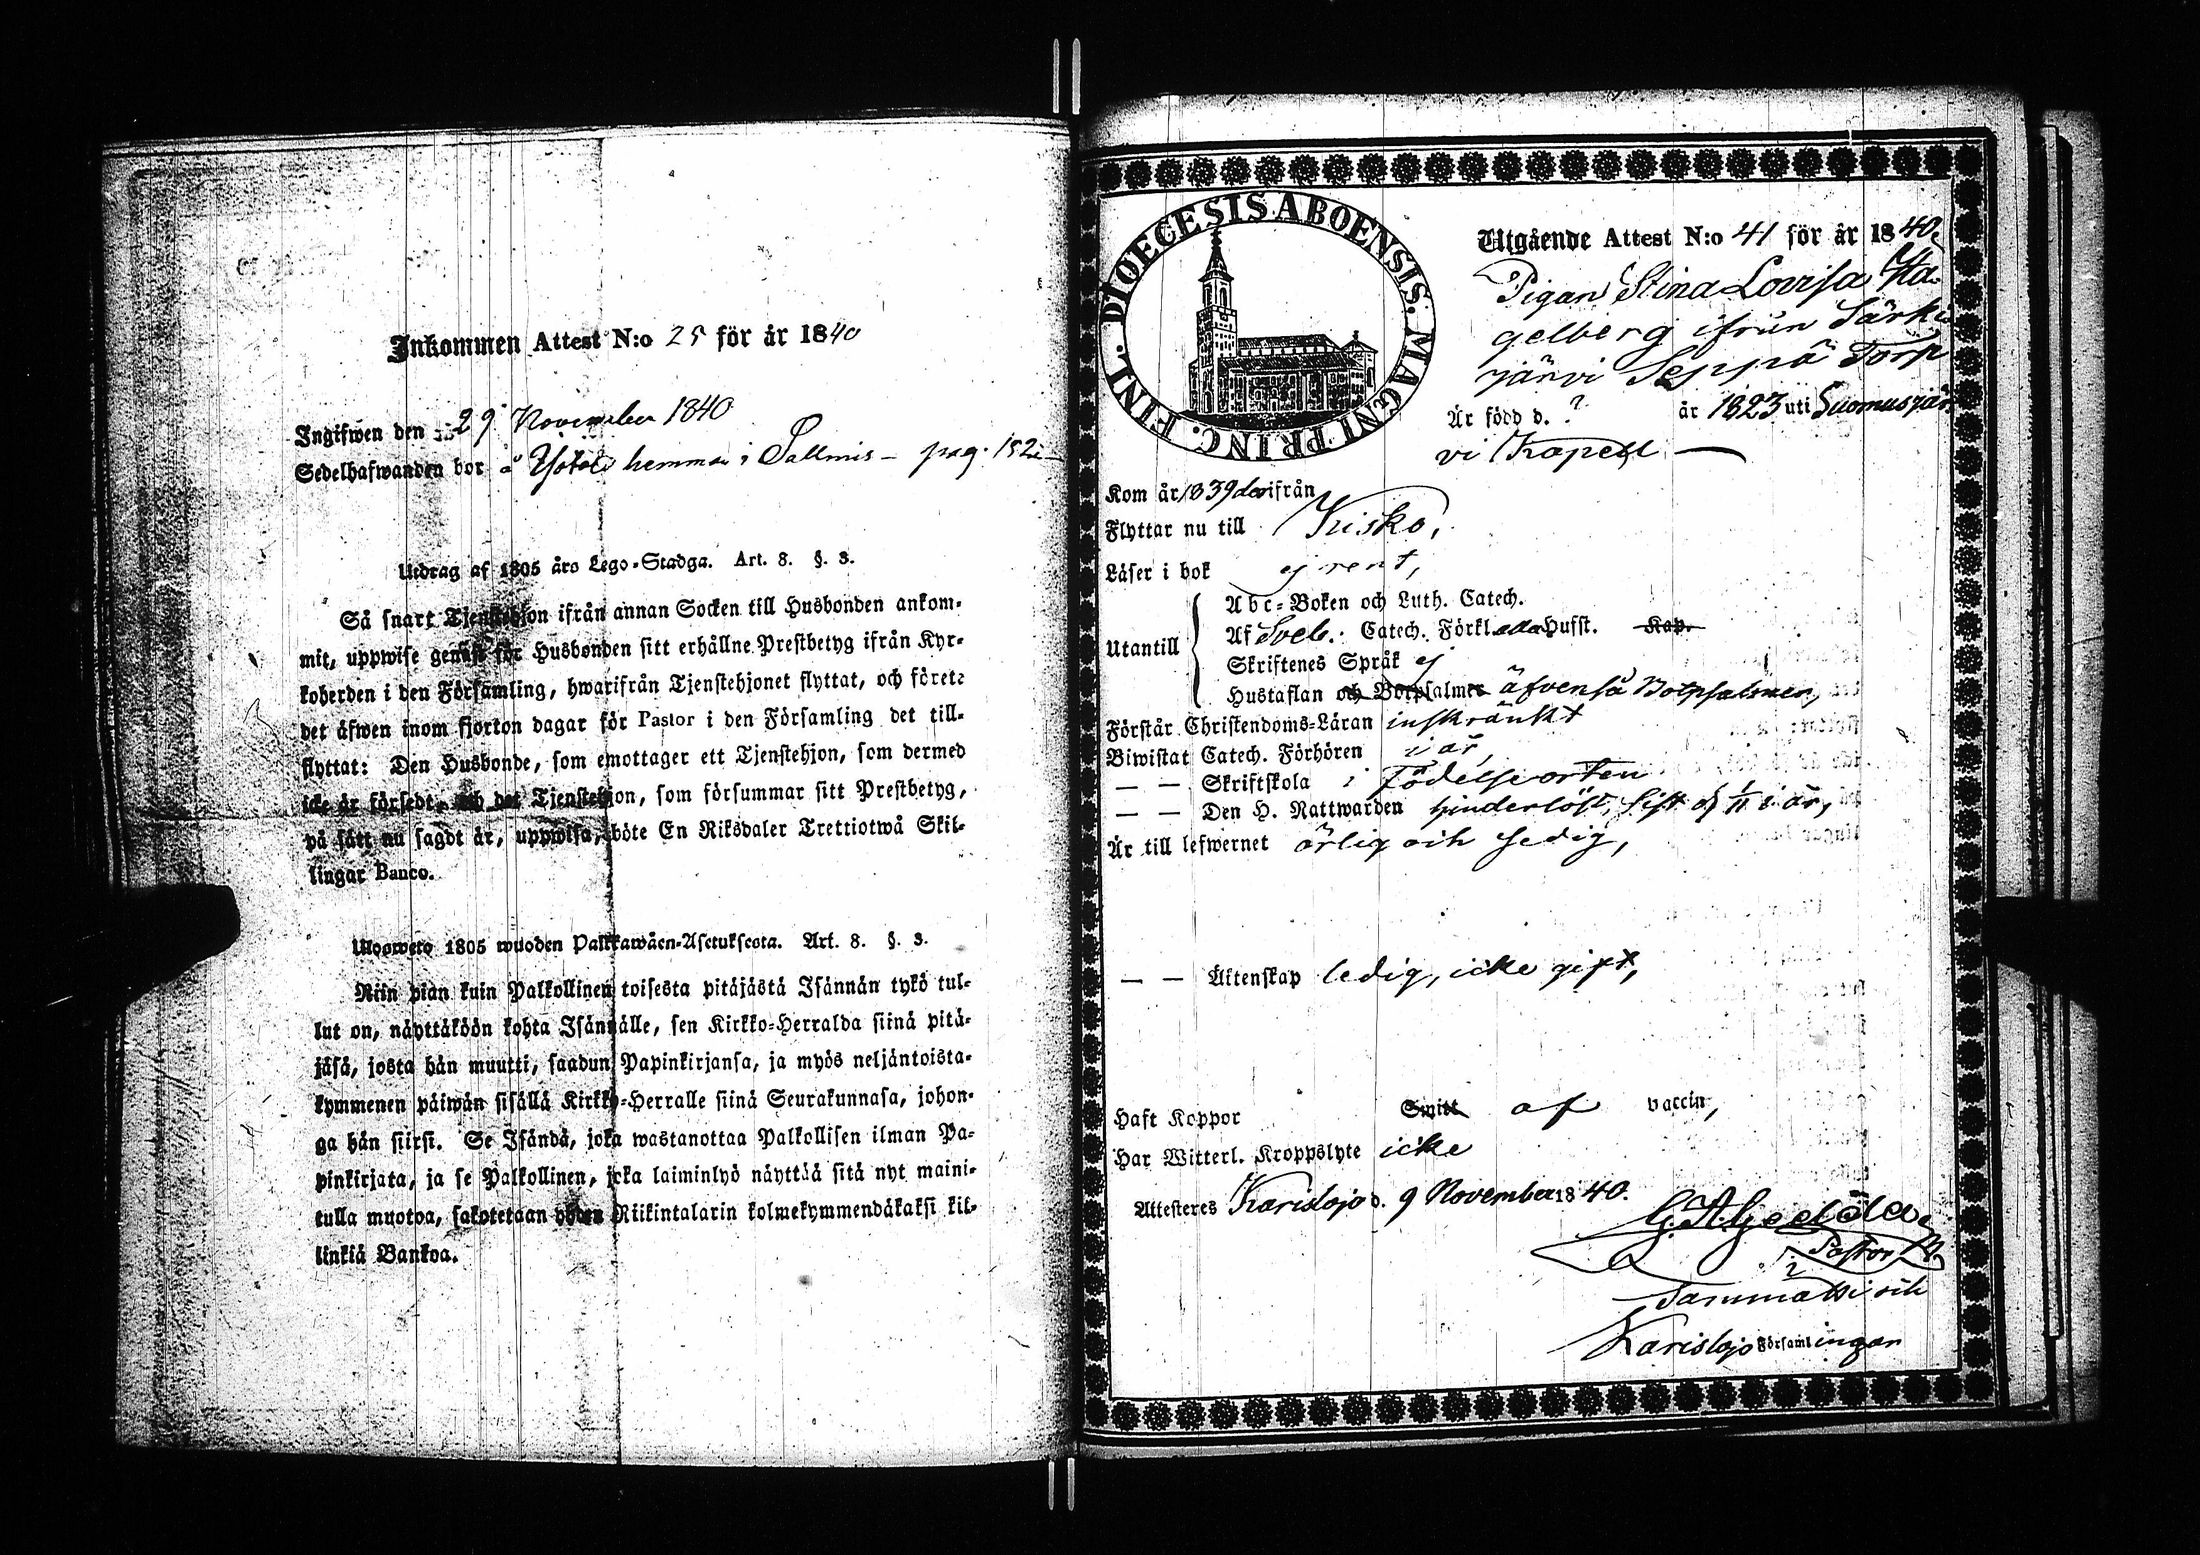 Inkommen Attest N:o 25 för år 1840
Ingifwen den 29 November 1840
Sedelhafwanden bor å hemman i Sallmis – pag. 152
Utdrag af 1805 års Lego-Stadga. Art. 8. §. 3.
Så snart Tjenstehjon ifrån annan Socken till Husbonden ankom-
mit, uppwise genast för Husbonden sitt erhållne Prestbetyg ifrån Kyr-
koherden i den Församling, hwarifrån Tjenstehjonet flyttat, och förete
det äfwen inom fjorton dagar för Pastor i den Församling det till-
flyttat: Den Husbonde, som emottager ett Tjenstehjon, som dermed
icke är försedt, och det Tjenstehjon, som försummar sitt Prestbetyg,
på sätt nu sagdt är, uppwisa, böte En Riksdaler Trettiotwå Skil-
lingar Banco.
Ulosweto 1805 wuoden Palkkawäen-Asetuksesta. Art. 8. §. 3.
Niin pian kuin Palkollinen toisesta pitäjästä Isännän tykö tul-
lut on, näyttäköön kohta Isännälle, sen Kirkko-Herralda siinä pitä-
jäsä, josta hän muutti, saadun Papinkirjansa, ja myös neljäntoista-
kymmenen päiwän sisällä Kirkko-Herralle siinä Seurakunnasa, johon-
ga hän siirsi. Se Isändä, joka wastanottaa Palkollisen ilman Pa-
pinkirjata, ja se Palkollinen, joka laiminlyö näyttää sitä nyt maini-
tulla muotoa, sakotetaan yhden Riikintalarin kolmekymmendäkaksi kil-
linkiä Bankoa.
DIOECESIS ABOENSIS. MAGNI PRINC. FINL.
Utgående Attest N:o 41 för år 1840
Pigan Stina Lovisa Ha-
gelberg ifrån Särki
järvi Seppä Torp
Är född d. ? år 1823 uti Suomusjär
vi Kapell —
Kom år 1839 derifrån
Flyttar nu till Kisko,
Läser i bok ej rent,
Utantill
Abc-Boken och Luth. Catech.
Af Sveb. Catech. Förkl. alla Husst. Kap.
Skriftenes Språk ej
Hustaflan och Botpsalmer äfvenså Botpsalmen,
Förstår Christendoms-Läran inskränkt
Biwistat Catech. Förhören i år,
— — Skriftskola i Födelseorten
— — Den H. Nattwarden hinderlöst, sist d 1/11 i år,
Är till lefwernet ärlig och sedig,
— — Äktenskap ledig, icke gift,
Haft Koppor Smitt af vaccin,
Har Witterl. Kroppslyte icke
Attesteres Karislojo d. 9 November 1840.
G. A.
Pastor
i
Sammatti och
Karislojo Församlingar